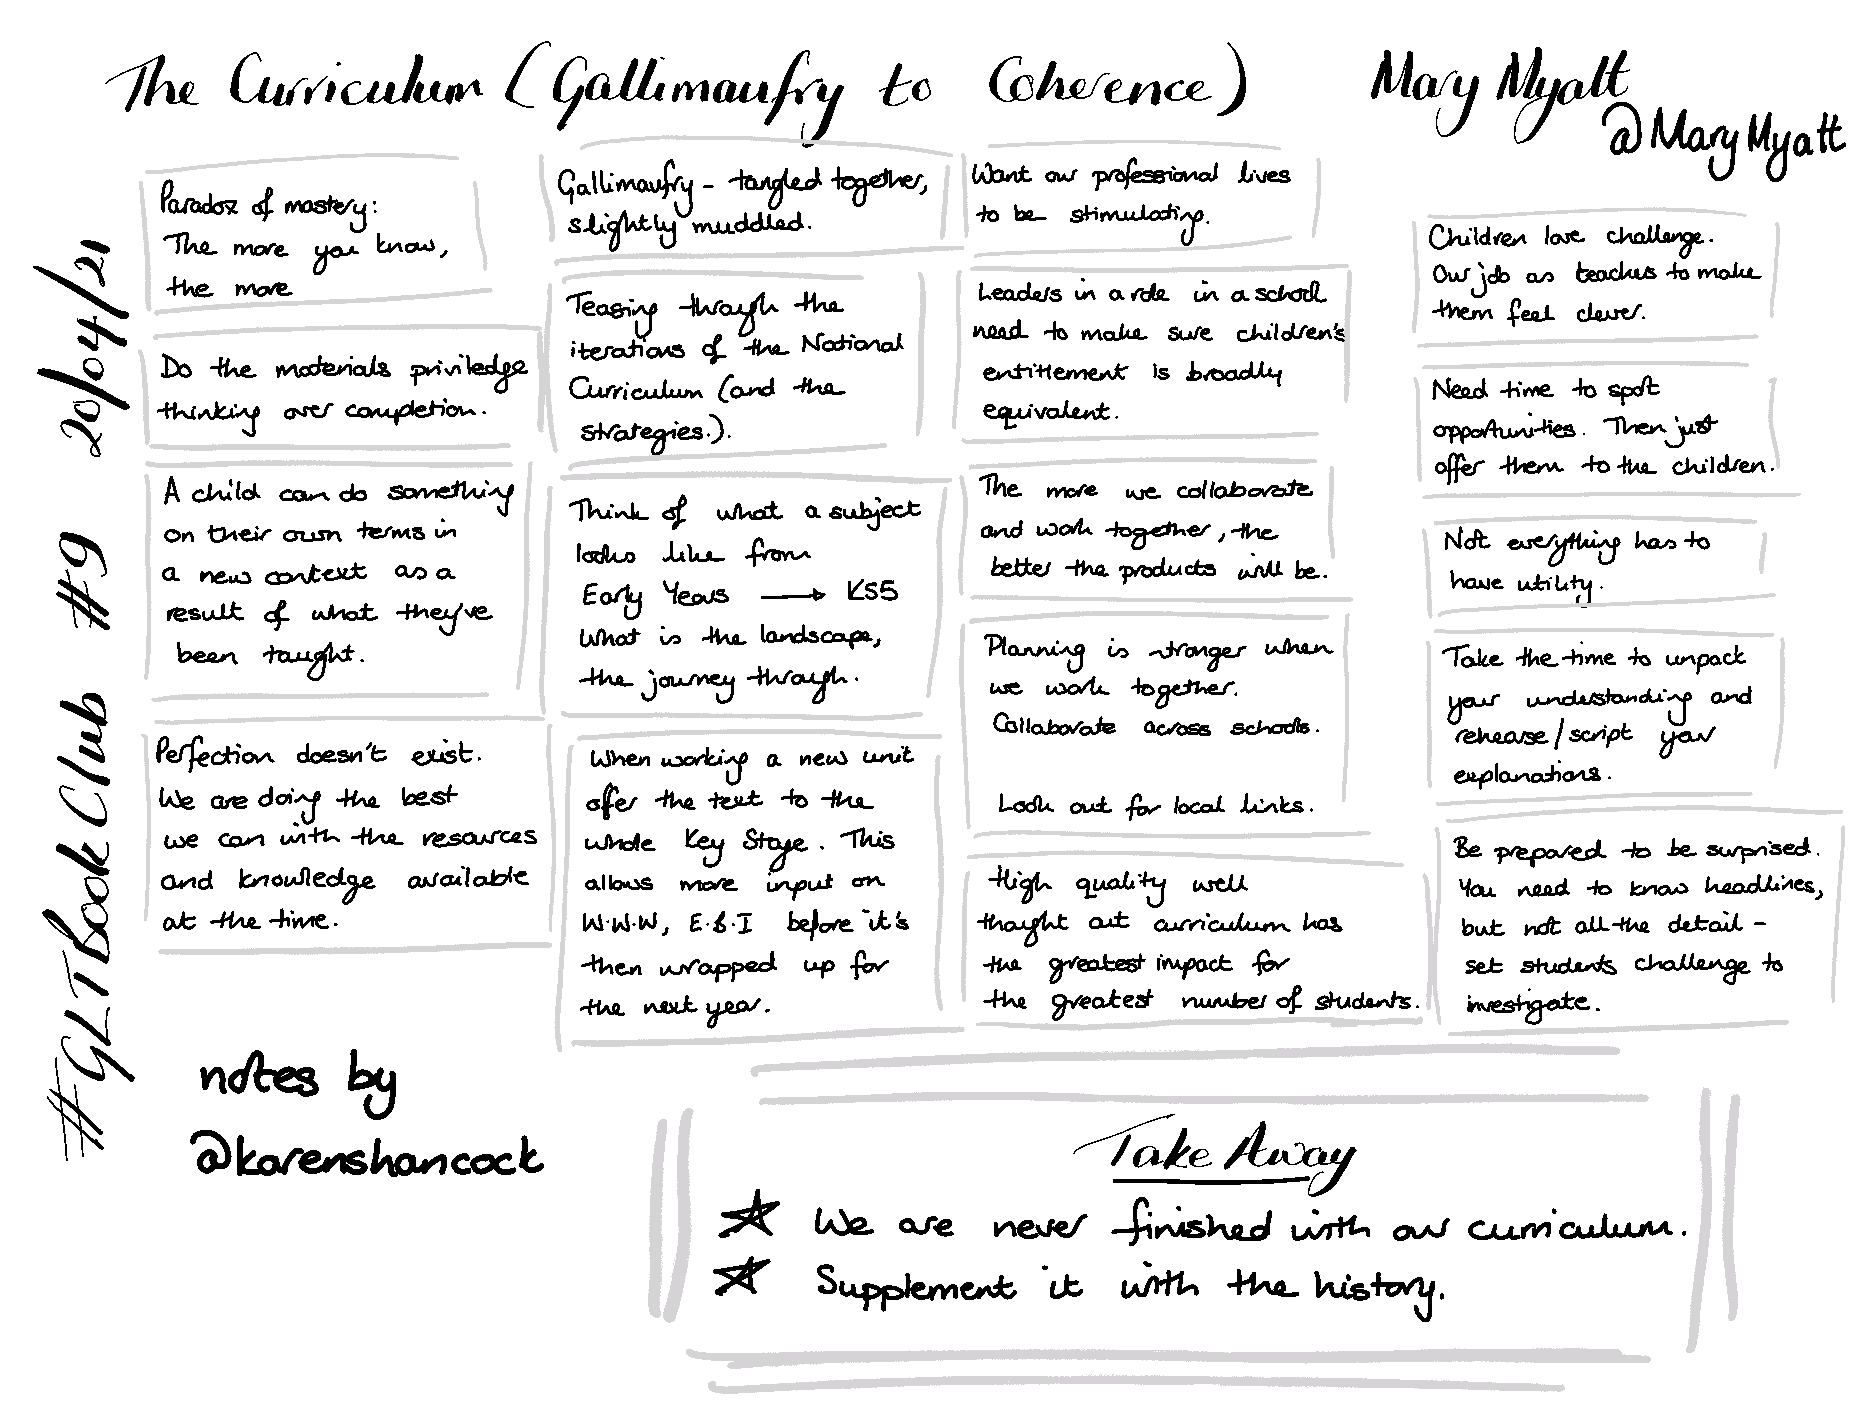 The Curriculum (Gallimaufry to Coherence)
Mary Myatt
@MaryMyatt
#GLTBookClub #9 20/04/21
Paradox of mastery:
The more you know,
the more
Do the materials priviledge
thinking over completion.
A child can do something
on their own terms in
a new context as a
result of what they've
been taught.
Perfection doesn't exist.
We are doing the best
we can with the resources
and knowledge available
at the time.
Gallimaufry - tangled together,
slightly muddled.
Teasing through the
iterations of the National
Curriculum (and the
strategies.).
Think of what a subject
looks like from
Early Years → KS5
What is the landscape,
the journey through.
When working a new unit
offer the text to the
whole Key Stage. This
allows more input on
W.W.W, E.B.I before it's
then wrapped up for
the next year.
Want our professional lives
to be stimulating.
Leaders in a role in a school
need to make sure children's
entitlement is broadly
equivalent.
The more we collaborate
and work together, the
better the products will be.
Planning is stronger when
we work together.
Collaborate across schools.
Look out for local links.
High quality well
thought out curriculum has
the greatest impact for
the greatest number of students.
Children love challenge.
Our job as teachers to make
them feel clever.
Need time to spot
opportunities. Then just
offer them to the children.
Not everything has to
have utility.
Take the time to unpack
your understanding and
rehearse/script your
explanations.
Be prepared to be surprised.
You need to know headlines,
but not all the detail -
set students challenge to
investigate.
notes by
@karenshancock
Take Away
☆ We are never finished with our curriculum.
☆ Supplement it with the history.